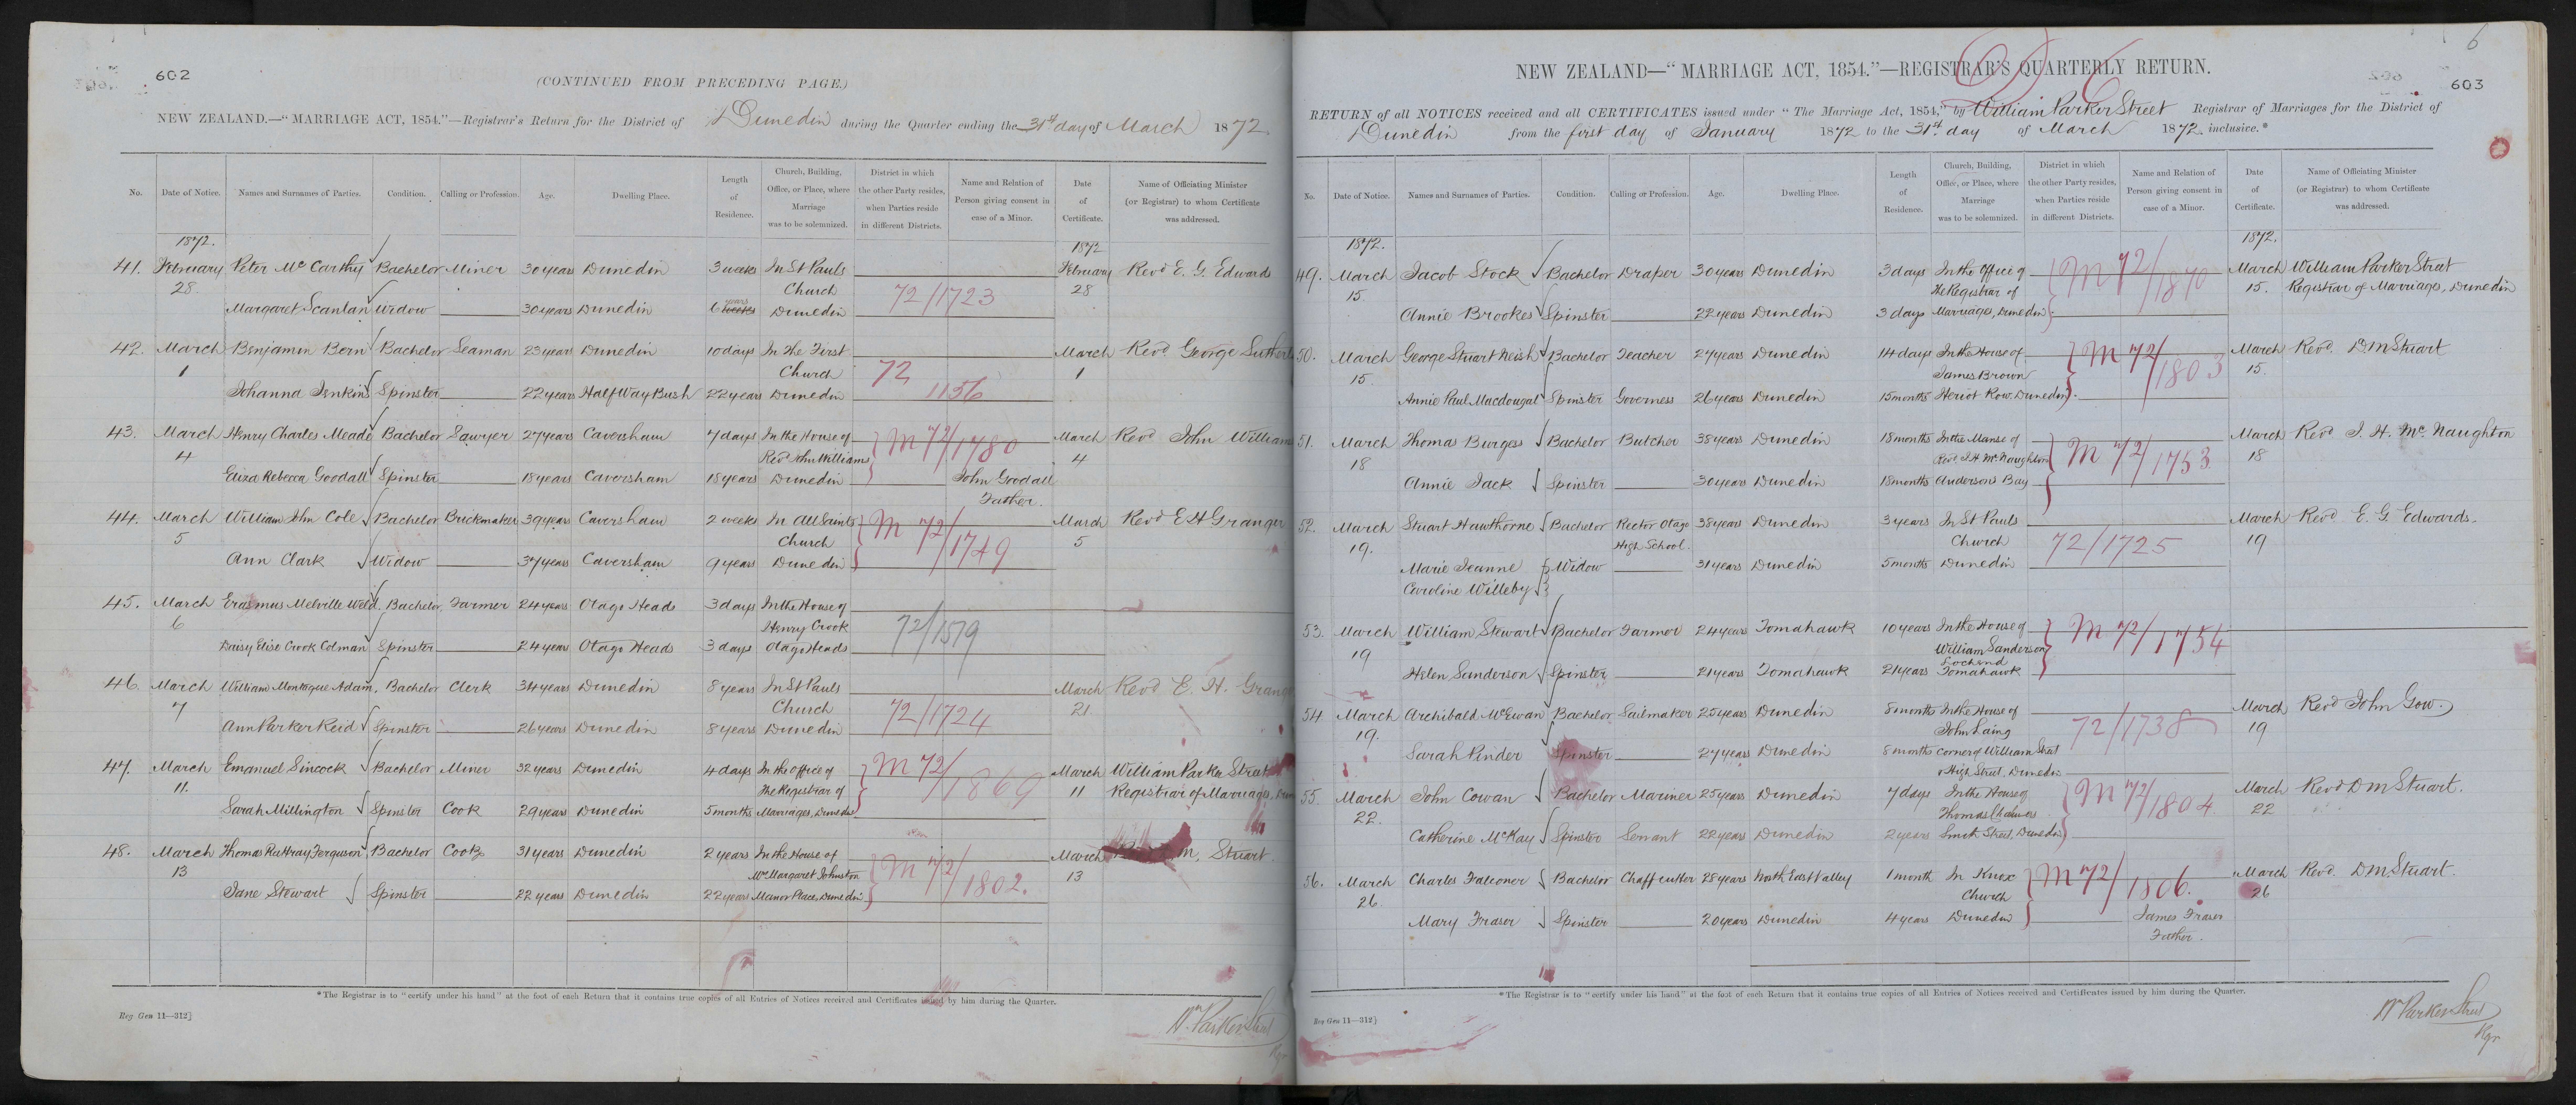 602
(CONTINUED FROM PRECEDING PAGE.)
NEW ZEALAND.—"MARRIAGE ACT, 1854."—Registrar's Return for the District of Dunedin during the Quarter ending the 31st day of March 1872.
No. Date of Notice. Names and Surnames of Parties. Condition. Calling or Profession. Age. Dwelling Place. Length of Residence. Church, Building, Office, or Place, where Marriage was to be solemnized. District in which the other Party resides, when Parties reside in different Districts. Name and Relation of Person giving consent in case of a Minor. Date of Certificate. Name of Officiating Minister (or Registrar) to whom Certificate was addressed.
1872. 1872
41. February Peter McCarthy Bachelor Miner 30 years Dunedin 3 weeks In St Pauls February Revd E. G. Edwards
28 Church 72/1723 28
Margaret Scanlan Widow 30 years Dunedin 6 years weeks Dunedin
42. March Benjamin Bern Bachelor Seaman 23 years Dunedin 10 days In The First March Revd George
1 Church 72 1
Johanna Jenkins Spinster 22 years Half Way Bush 22 years Dunedin 1156
43. March Henry Charles Meade Bachelor Sawyer 27 years Caversham 7 days In the House of M 72/1780 March Revd John Williams
4 Revd John Williams 4
Eliza Rebecca Goodall Spinster 18 years Caversham 18 years Dunedin John Goodall
Father.
44. March William John Cole Bachelor Brickmaker 39 years Caversham 2 weeks In All Saints M 72/1749 March Revd E H Granger
5 Church 5
Ann Clark Widow 37 years Caversham 9 years Dunedin
45. March Erasmus Melville Weld Bachelor Farmer 24 years Otago Heads 3 days In the House of
6 Henry Crook 72/1579
Daisy Elise Crook Colman Spinster 24 years Otago Heads 3 days Otago Heads
46. March William Montague Adam, Bachelor Clerk 34 years Dunedin 8 years In St Pauls March Revd E. H.
7 Church 72/1724 21
Ann Parker Reid Spinster 26 years Dunedin 8 years Dunedin
47. March Emanuel Sincock Bachelor Miner 32 years Dunedin 4 days In the office of M 72/1869 March William Parker Street
11. The Registrar of 11 Registrar of Marriages,
Sarah Millington Spinster Cook 29 years Dunedin 5 months Marriages, Dunedin
48. March Thomas Rattray Ferguson Bachelor Cook 31 years Dunedin 2 years In the House of M 72/1802. March M. Stuart
13 Margaret Johnston 13
Jane Stewart Spinster 22 years Dunedin 22 years Manor Place, Dunedin
*The Registrar is to "certify under his hand" at the foot of each Return that it contains true copies of all Entries of Notices received and Certificates issued by him during the Quarter.
Reg. Gen 11—312]
Wm Parker Street
Rgr
6
603
NEW ZEALAND—"MARRIAGE ACT, 1854."—REGISTRAR'S QUARTERLY RETURN.
RETURN of all NOTICES received and all CERTIFICATES issued under "The Marriage Act, 1854," by William Parker Street Registrar of Marriages for the District of
Dunedin from the first day of January 1872 to the 31st day of March 1872, inclusive.*
No. Date of Notice. Names and Surnames of Parties. Condition. Calling or Profession. Age. Dwelling Place. Length of Residence. Church, Building, Office, or Place, where Marriage was to be solemnized. District in which the other Party resides, when Parties reside in different Districts. Name and Relation of Person giving consent in case of a Minor. Date of Certificate. Name of Officiating Minister (or Registrar) to whom Certificate was addressed.
1872. 1872.
49. March Jacob Stock Bachelor Draper 30 years Dunedin 3 days In the Office of M 72/1870 March William Parker Street
15. The Registrar of 15. Registrar of Marriages, Dunedin
Annie Brookes Spinster 22 years Dunedin 3 days Marriages, Dunedin
50. March George Stuart Neish Bachelor Teacher 27 years Dunedin 14 days In the House of M 72/1803 March Revd. D M Stuart
15. James Brown 15.
Annie Paul Macdougal Spinster Governess 26 years Dunedin 15 months Heriot Row, Dunedin
51. March Thomas Burgess Bachelor Butcher 38 years Dunedin 18 months In the Manse of M 72/1753 March Revd J. H. McNaughton
18 Revd. J. H. McNaughton 18
Annie Jack Spinster 30 years Dunedin 18 months Andersons Bay
52. March Stuart Hawthorne Bachelor Rector Otago 38 years Dunedin 3 years In St Pauls March Revd. E. G. Edwards.
19. High School. Church 72/1725 19
Marie Jeanne Widow 31 years Dunedin 5 months Dunedin
Caroline Willeby
53. March William Stewart Bachelor Farmer 24 years Tomahawk 10 years In the House of M 72/1754
19 William Sanderson
Lochend
Helen Sanderson Spinster 21 years Tomahawk 21 years Tomahawk
54 March Archibald McEwan Bachelor Sailmaker 25 years Dunedin 8 months In the House of March Revd John Gow.
19. John Laing 72/1738 19
Sarah Pinder Spinster 27 years Dunedin 8 months corner of William Street
& High Street, Dunedin
55. March John Cowan Bachelor Mariner 25 years Dunedin 7 days In the House of M 72/1804 March Revd D M Stuart.
22. Thomas Chalmers 22
Catherine McKay Spinster Servant 22 years Dunedin 2 years Smith Street, Dunedin
56. March Charles Falconer Bachelor Chaff cutter 28 years North East Valley 1 month In Knox M 72/1806. March Revd. D M Stuart.
26. Church 26
Mary Fraser Spinster 20 years Dunedin 4 years Dunedin James Fraser
Father.
*The Registrar is to "certify under his hand" at the foot of each Return that it contains true copies of all Entries of Notices received and Certificates issued by him during the Quarter.
Reg Gen 11—312]
Wm Parker Street
Rgr